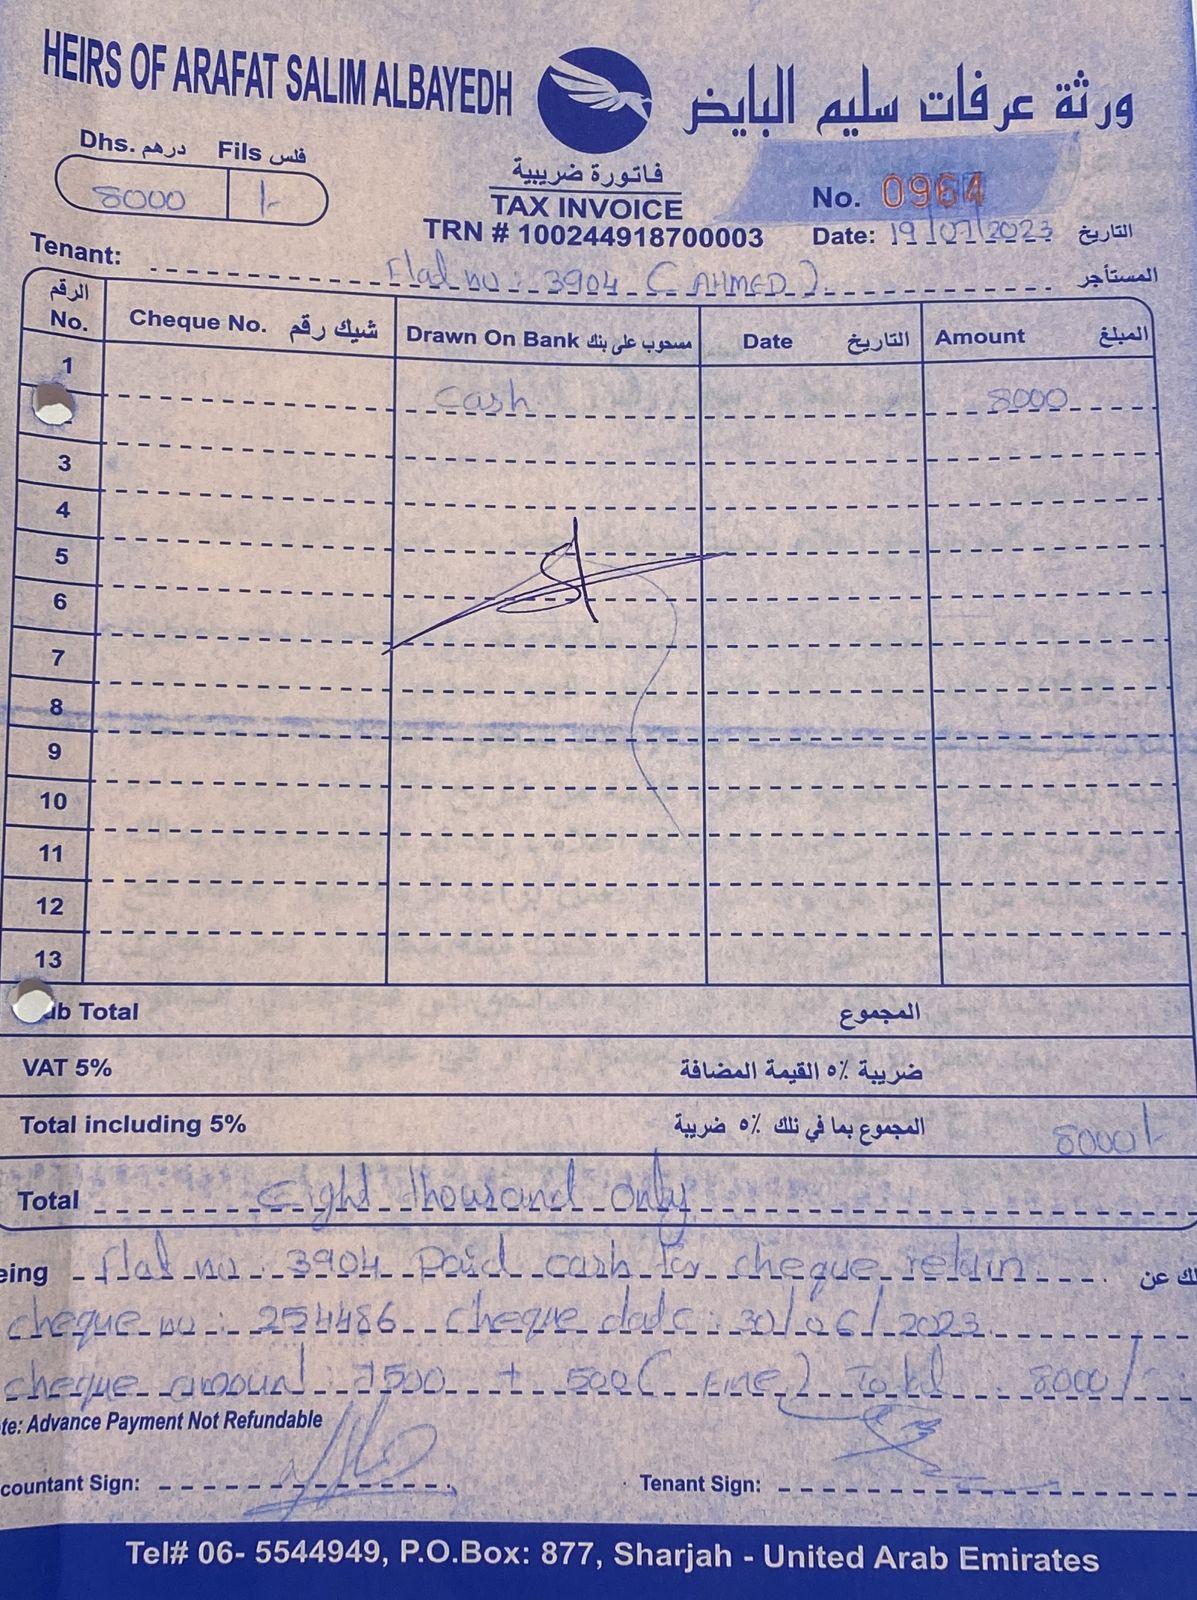 HEIRS OF ARAFAT SALIM ALBAYEDH
ورثة عرفات سليم البايض
Dhs. درهم Fils فلس
8000 /-
فاتورة ضريبية
TAX INVOICE
TRN # 100244918700003
No. 0964
Date: 19/07/2023 التاريخ
Tenant: Flat no : 3904 (AHMED) المستأجر
الرقم No. Cheque No. شيك رقم Drawn On Bank مسحوب على بنك Date التاريخ Amount المبلغ
1
Cash 8000
3
4
5
6
7
8
9
10
11
12
13
ub Total المجموع
VAT 5% ضريبة ٥٪ القيمة المضافة
Total including 5% المجموع بما في تلك ٥٪ ضريبة 8000/-
Total Eight thousand only
eing Flat no : 3904 Paid cash for cheque retain لك عن
cheque no : 254486 cheque date : 30/06/2023
cheque amount : 7500 + 500 (FINE) Total : 8000/-
te: Advance Payment Not Refundable
countant Sign: Tenant Sign:
Tel# 06- 5544949, P.O.Box: 877, Sharjah - United Arab Emirates